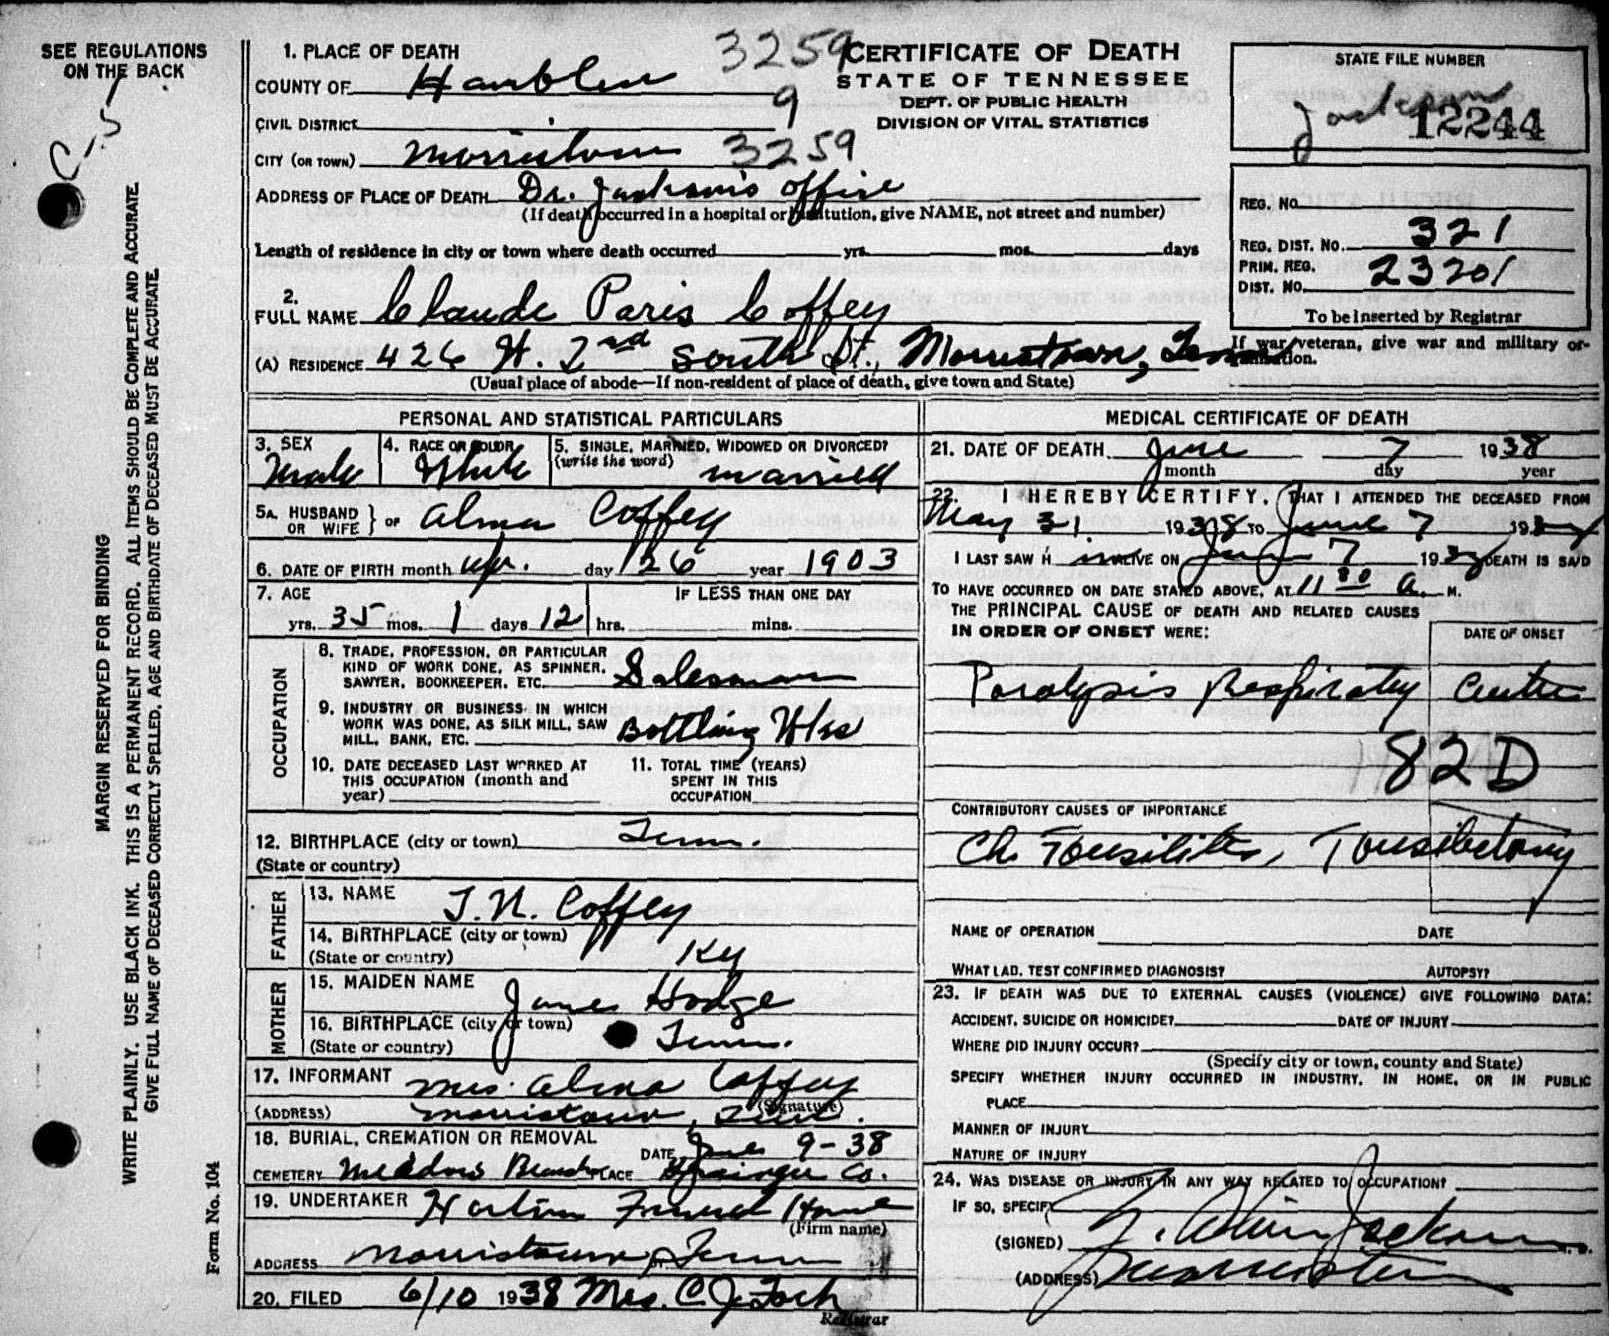 SEE REGULATIONS
ON THE BACK
MARGIN RESERVED FOR BINDING
WRITE PLAINLY. USE BLACK INK. THIS IS A PERMANENT RECORD. ALL ITEMS SHOULD BE COMPLETE AND ACCURATE.
GIVE FULL NAME OF DECEASED CORRECTLY SPELLED, AGE AND BIRTHDATE OF DECEASED MUST BE ACCURATE
Form No. 104
1. PLACE OF DEATH 3259
COUNTY OF Hamblen
CIVIL DISTRICT 9
CITY (OR TOWN) Morristown 3259
ADDRESS OF PLACE OF DEATH Dr. Jackson's office
(If death occurred in a hospital or institution, give NAME, not street and number)
Length of residence in city or town where death occurred yrs. mos. days
CERTIFICATE OF DEATH
STATE OF TENNESSEE
DEPT. OF PUBLIC HEALTH
DIVISION OF VITAL STATISTICS
STATE FILE NUMBER
Jackson
12244
REG. NO.
REG. DIST. NO. 321
PRIM. REG.
DIST. NO. 23201
To be inserted by Registrar
2.
FULL NAME Claude Paris Coffey
(A) RESIDENCE 426 W. 2nd South St., Morristown, Tenn
(Usual place of abode—If non-resident of place of death, give town and State)
If war veteran, give war and military or-
PERSONAL AND STATISTICAL PARTICULARS
3. SEX Male
4. RACE OR COLOR White
5. SINGLE, MARRIED, WIDOWED OR DIVORCED?
(write the word) married
5A. HUSBAND
OR WIFE } OF Alma Coffey
6. DATE OF BIRTH month Apr. day 26 year 1903
7. AGE IF LESS THAN ONE DAY
yrs. 35 mos. 1 days 12 hrs. mins.
OCCUPATION
8. TRADE, PROFESSION, OR PARTICULAR
KIND OF WORK DONE, AS SPINNER,
SAWYER, BOOKKEEPER, ETC. Salesman
9. INDUSTRY OR BUSINESS IN WHICH
WORK WAS DONE, AS SILK MILL, SAW
MILL, BANK, ETC. Bottling Wks
10. DATE DECEASED LAST WORKED AT
THIS OCCUPATION (month and
year)
11. TOTAL TIME (YEARS)
SPENT IN THIS
OCCUPATION
12. BIRTHPLACE (city or town) Tenn.
(State or country)
FATHER
13. NAME J. N. Coffey
14. BIRTHPLACE (city or town)
(State or country) Ky
MOTHER
15. MAIDEN NAME Jane Hodge
16. BIRTHPLACE (city or town)
(State or country) Tenn.
17. INFORMANT Mrs. Alma Coffey
(Signature)
(ADDRESS) Morristown, Tenn.
18. BURIAL, CREMATION OR REMOVAL
DATE June 9-38
CEMETERY Meadow Branch PLACE Grainger Co.
19. UNDERTAKER Funeral Home
(Firm name)
ADDRESS Morristown, Tenn
20. FILED 6/10 1938 Mrs. C.
Registrar
MEDICAL CERTIFICATE OF DEATH
21. DATE OF DEATH June 7 1938
month day year
22. I HEREBY CERTIFY, THAT I ATTENDED THE DECEASED FROM
May 31 1938 TO June 7 1938
I LAST SAW H im ALIVE ON June 7 1938 DEATH IS SAID
TO HAVE OCCURRED ON DATE STATED ABOVE, AT 11 30 A. M.
THE PRINCIPAL CAUSE OF DEATH AND RELATED CAUSES
IN ORDER OF ONSET WERE: DATE OF ONSET
Paralysis Respiratory Center
82D
CONTRIBUTORY CAUSES OF IMPORTANCE
Ch. Tonsilitis, Tonsilectomy
NAME OF OPERATION DATE
WHAT LAB. TEST CONFIRMED DIAGNOSIS? AUTOPSY?
23. IF DEATH WAS DUE TO EXTERNAL CAUSES (VIOLENCE) GIVE FOLLOWING DATA:
ACCIDENT, SUICIDE OR HOMICIDE? DATE OF INJURY
WHERE DID INJURY OCCUR?
(Specify city or town, county and State)
SPECIFY WHETHER INJURY OCCURRED IN INDUSTRY, IN HOME, OR IN PUBLIC
PLACE
MANNER OF INJURY
NATURE OF INJURY
24. WAS DISEASE OR INJURY IN ANY WAY RELATED TO OCCUPATION?
IF SO, SPECIFY
(SIGNED) Jackson
(ADDRESS) Morristown